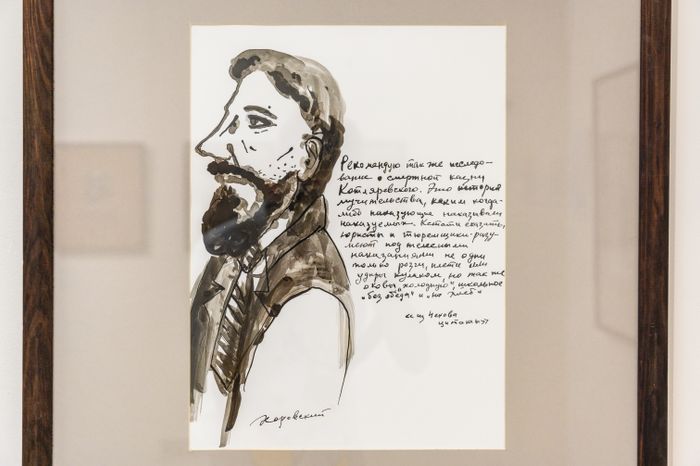 Рекомендую так же исследо-
вание о смертной казни
Котляревского. Это история
мучительства, каким когда-
либо наказующие наказывали
наказуемых. Кстати сказать,
юристы и тюремщики разу-
меют под телесными
наказаниями не одни
только розги, плети или
удары кулаком, но так же
оковы, "холодную", школьное
"без обеда" и "на хлеб"
из Чехова